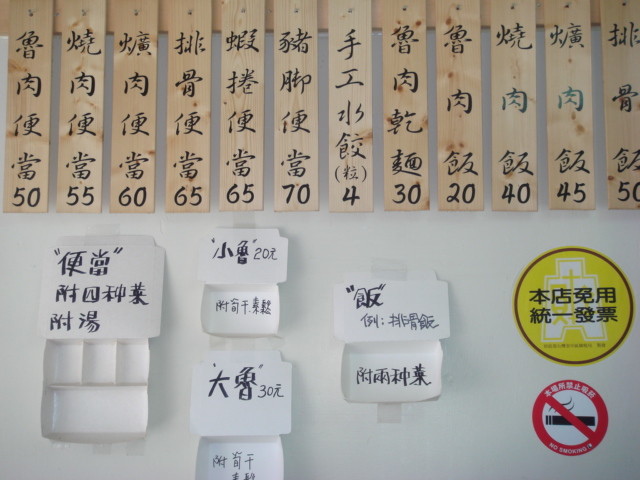 魯肉便當50
燒肉便當55
爌肉便當60
排骨便當65
蝦捲便當65
豬脚便當70
手工水餃(粒)4
魯肉乾麵30
魯肉飯20
燒肉飯40
爌肉飯45
排骨飯50
"便當"
附四種菜
附湯
"小魯"20元
附筍干.素鬆
"大魯"30元
附筍干
素鬆
"飯"
例:排骨飯
附兩種菜
本店免用
統一發票
本場所禁止吸菸
NO SMOKING